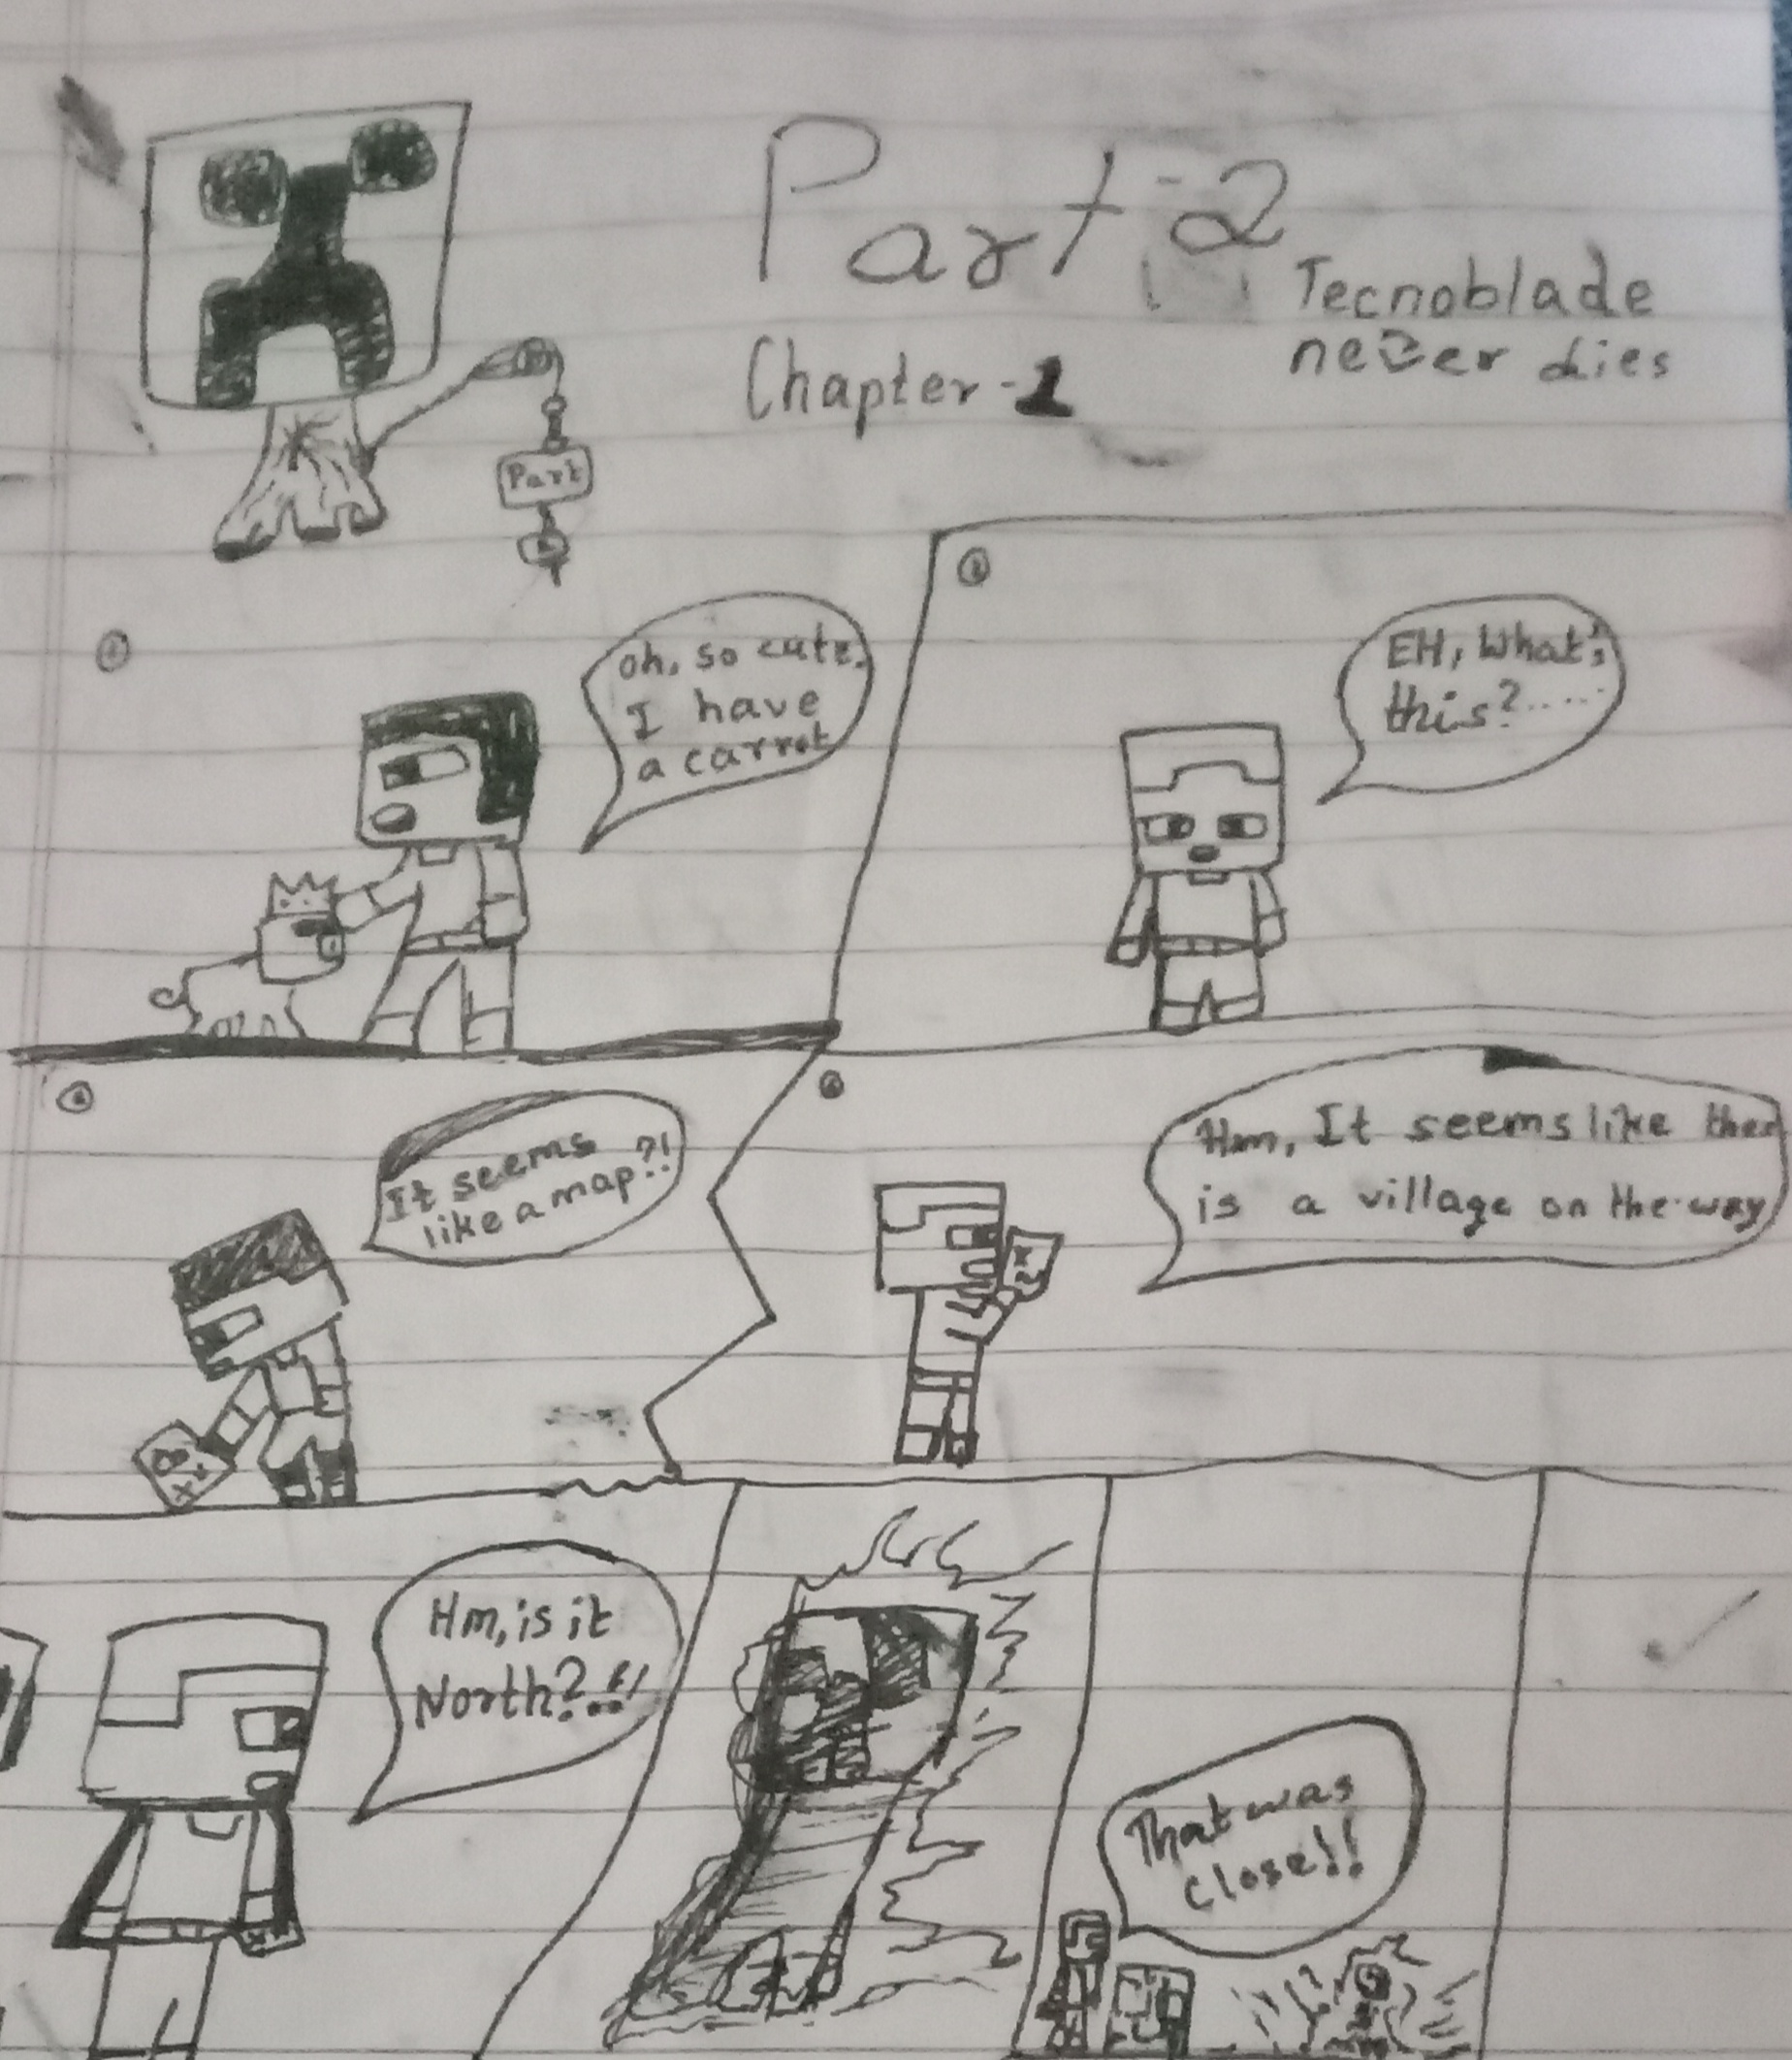 Part-2
Tecnoblade
never dies
Chapter-1
Part
oh, so cute.
I have
a carrot
EH, What's
this?.....
It seems
like a map?!
Hm, It seems like
is a village on the way
Hm, is it
North?..!!
That was
close!!